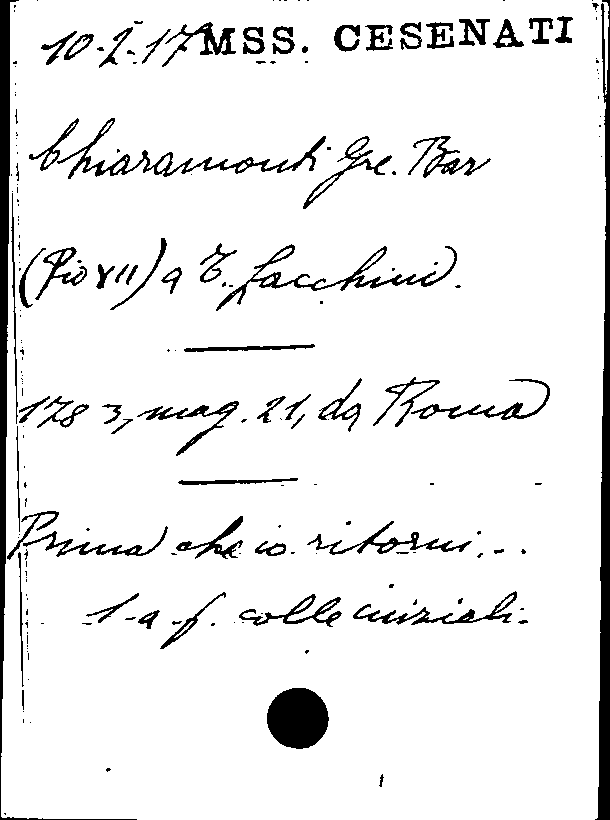 10-2-17 MSS. CESENATI
Chiaramonti Gre. Bar
(Pio VII) a T. Facchini.
1783, mag. 21, da Roma
Prima che io ritorni...
l. a. f. colle iniziali.